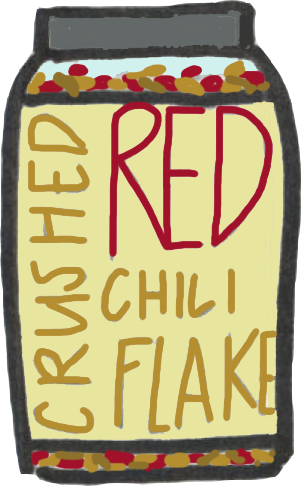 CRUSHED
RED
CHILI
FLAKE